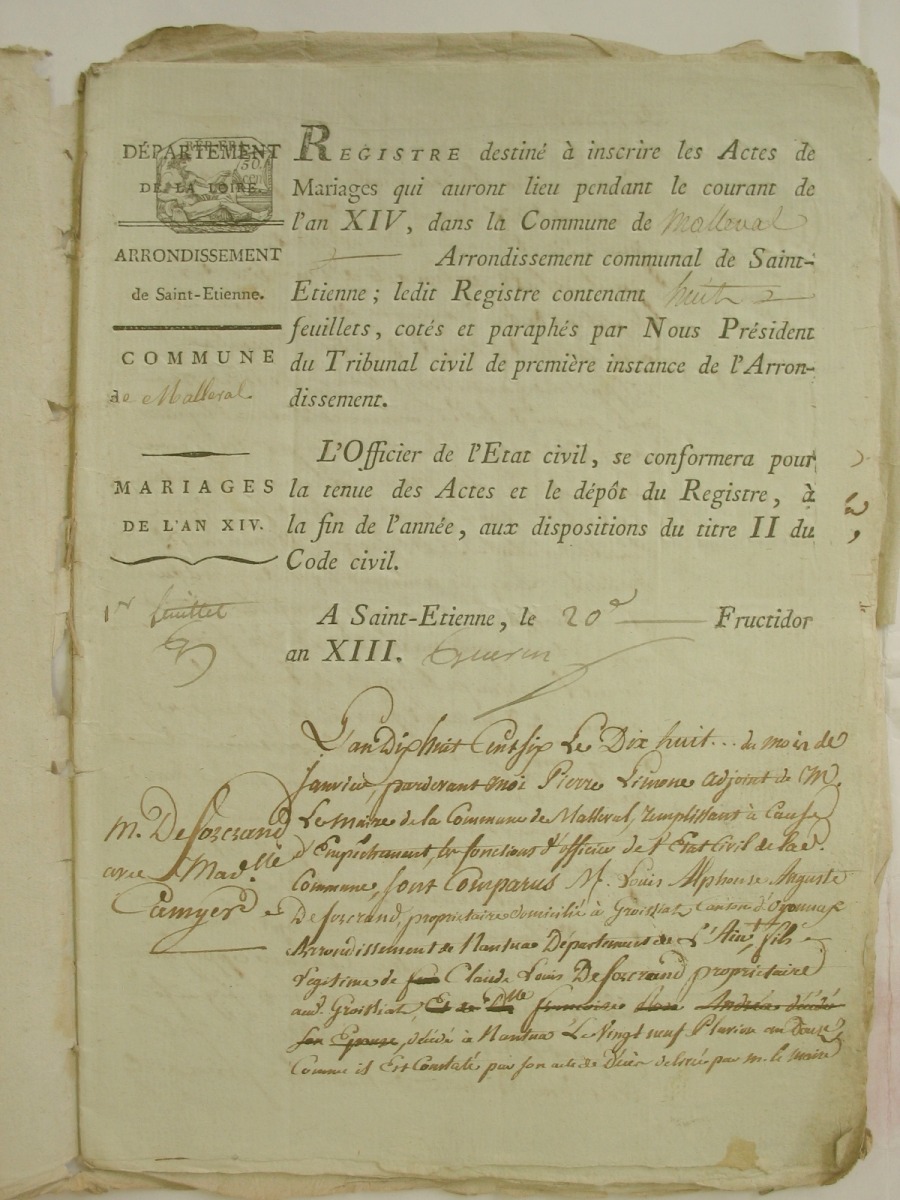 DÉPARTEMENT
DE LA LOIRE.
ARRONDISSEMENT
de Saint-Etienne.
COMMUNE
de Malleval
MARIAGES
DE L'AN XIV.
1er feuillet
REGISTRE destiné à inscrire les Actes de
Mariages qui auront lieu pendant le courant de
l'an XIV, dans la Commune de Malleval
Arrondissement communal de Saint-
Etienne; ledit Registre contenant huit
feuillets, cotés et paraphés par Nous Président
du Tribunal civil de première instance de l'Arron-
dissement.
L'Officier de l'Etat civil, se conformera pour
la tenue des Actes et le dépôt du Registre, à
la fin de l'année, aux dispositions du titre II du
Code civil.
A Saint-Etienne, le 20e Fructidor
an XIII. Guerin
M. Deforcrand
avec Madelle
Camyer
L'an Dix huit Cent six Le Dix huit... du mois de
Janvier pardevant moi Pierre Limone adjoint de M.
Le Maire de la Commune de Malleval, remplissant à Cause
d'Empêchement, les fonctions d'officier de l'Etat Civil de lad.
Commune, sont Comparus M. Louis Alphonse Auguste
Deforcrand, propriétaire domicilié à Groissiat Canton d'Oyonnax
Arrondissement de Nantua Département de L'Ain, fils
Légitime de feu Claude Louis Deforcrand propriétaire
aud. Groissiat, Et de Dlle françoise Andréa décédé
son Epouse, décédé à Nantua Le Vingt neuf Pluviose an Douze
Comme il Est Constaté par son acte de Décès delivrée par m. le maire